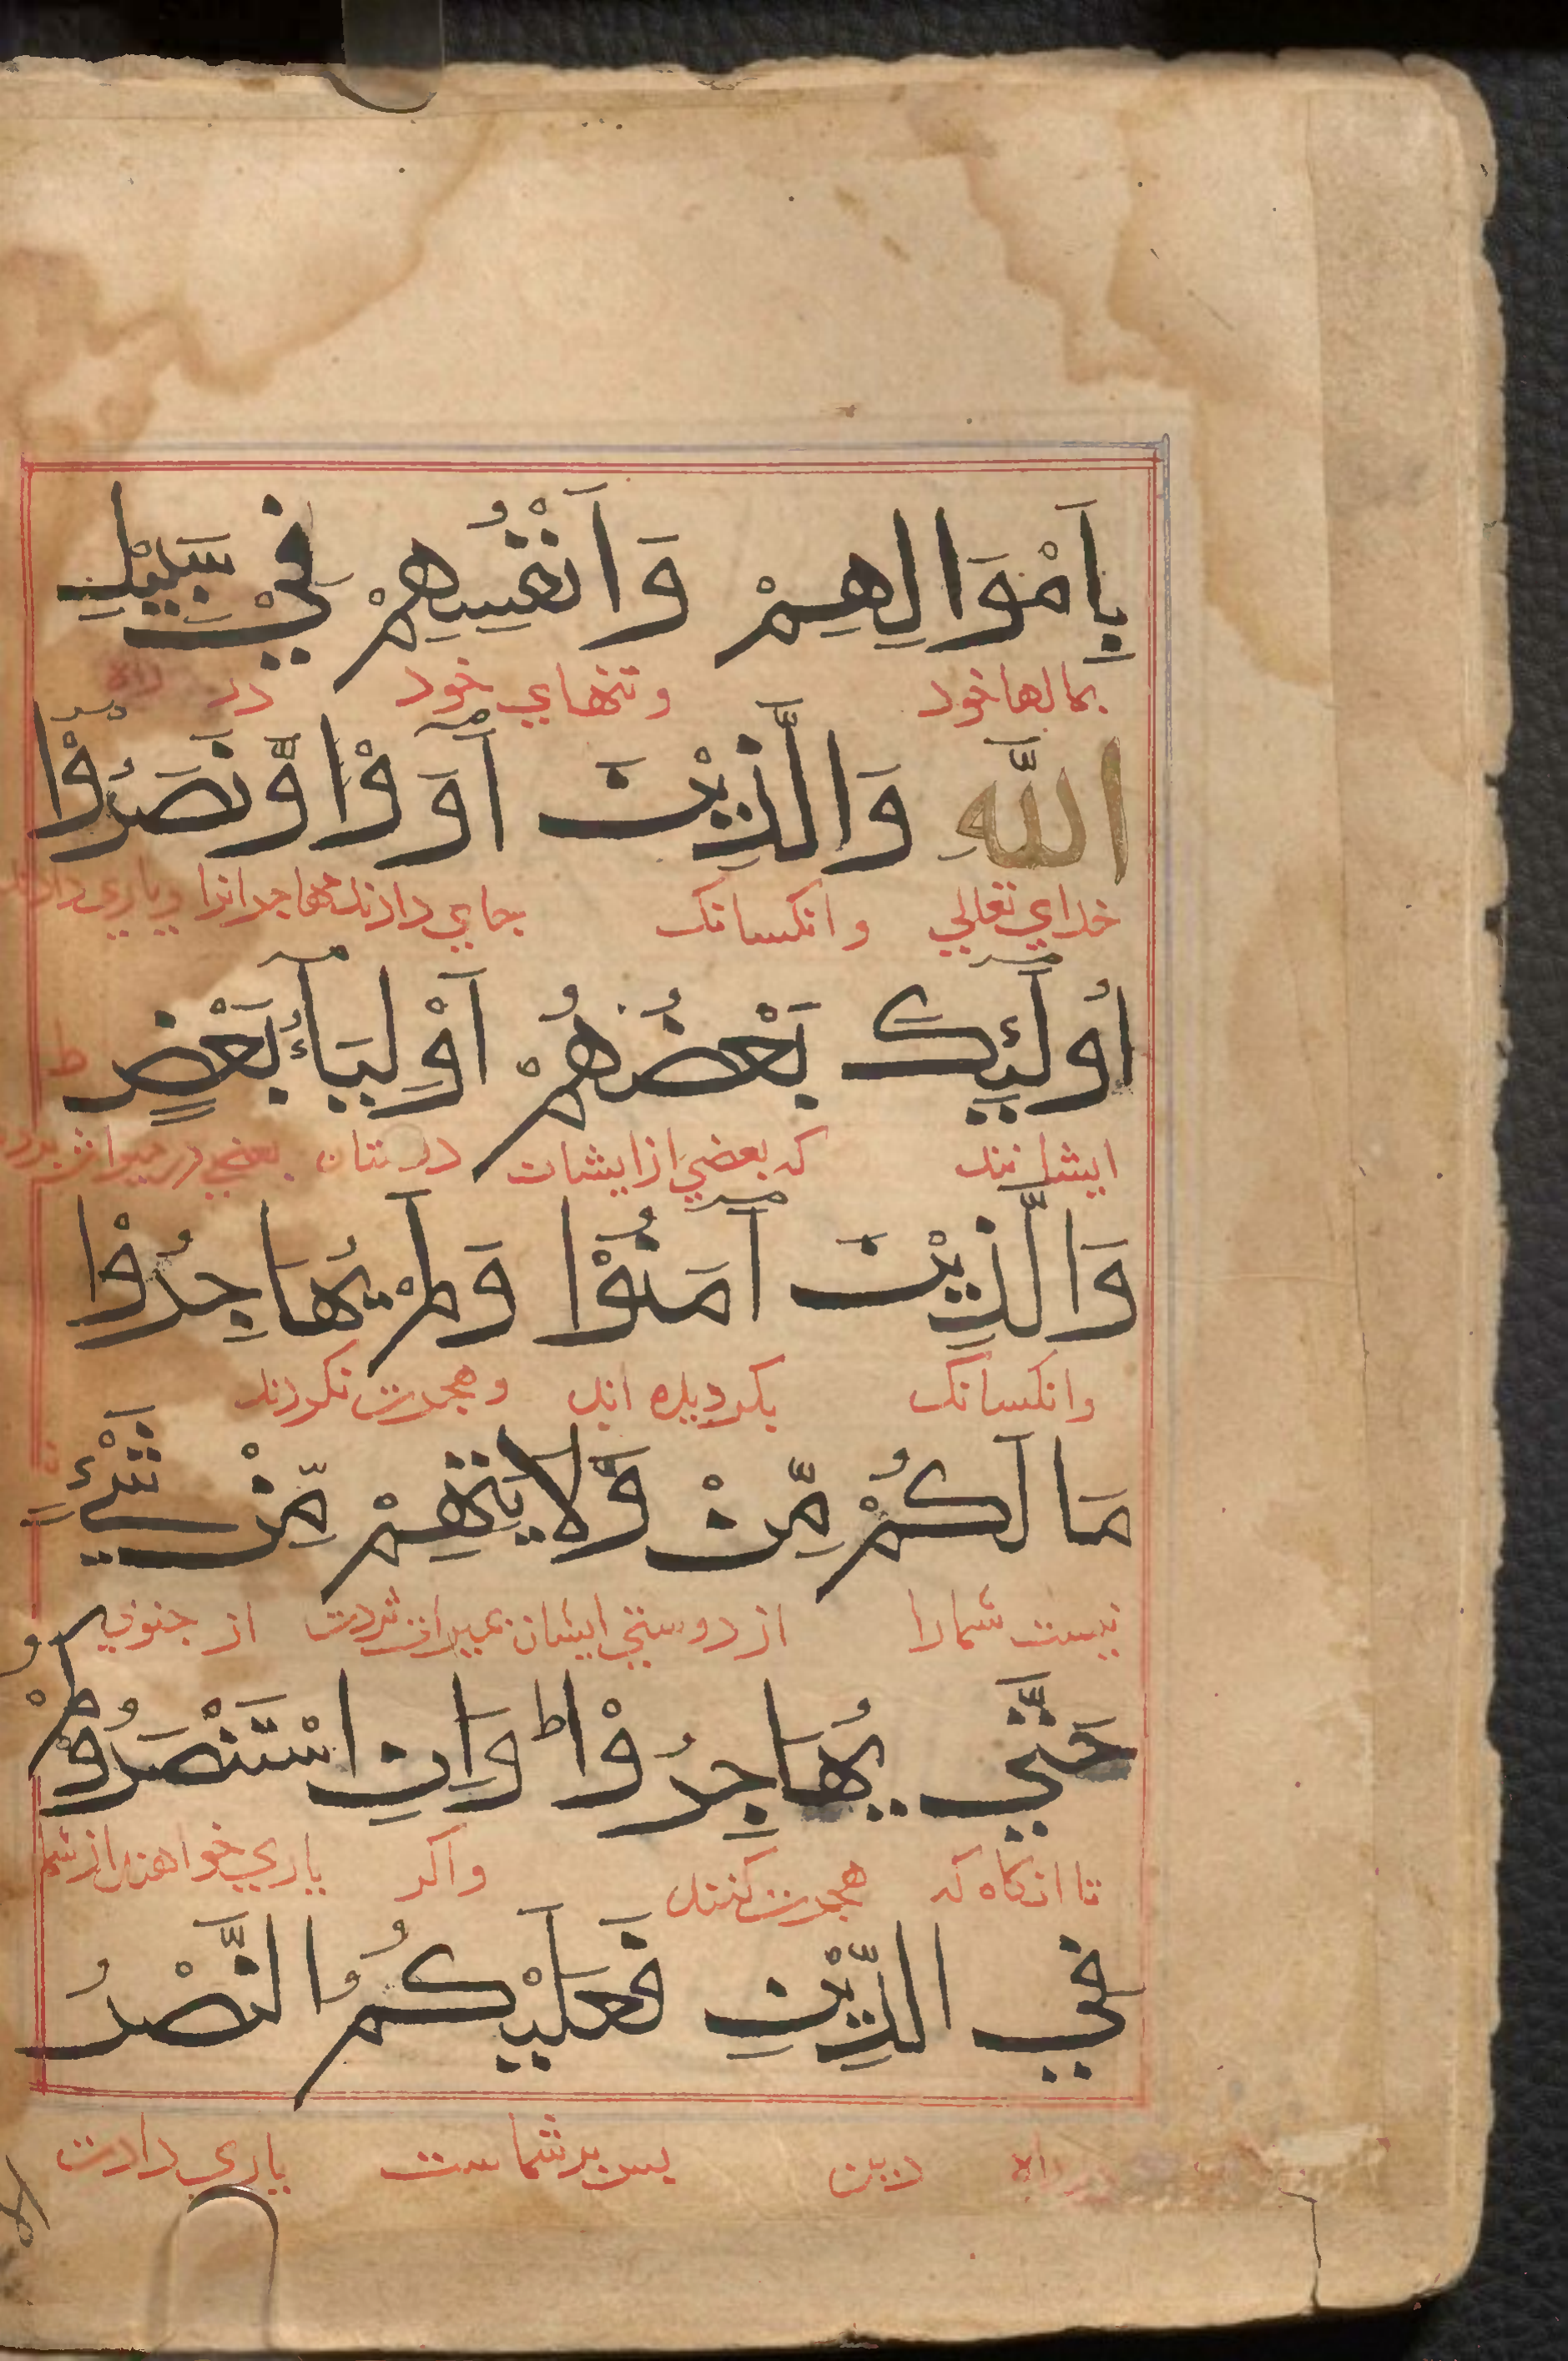 بِاَمْوَالِهِمْ وَاَنْفُسِهِمْ فِيْ سَبِيْلِ
بمالها خود وتنهاي خود در راه
اللّٰهِ وَالَّذِيْنَ اٰوَوْا وَّنَصَرُوْا
خداي تعالي وانكسانك بجاي دادند مهاجرانرا وياري دادند
اُولٰٓئِكَ بَعْضُهُمْ اَوْلِيَآءُ بَعْضٍ ط
ايشانند كه بعضي ازايشان دوستان بعضي در ميراث بردن
وَالَّذِيْنَ اٰمَنُوْا وَلَمْ يُهَاجِرُوْا
وانكسانك بكرويده اند وهجرت نكردند
مَا لَكُمْ مِّنْ وَّلَايَتِهِمْ مِّنْ شَيْءٍ
نيست شمارا از دوستي ايشان بميراث بردن از چيزي
حَتّٰي يُهَاجِرُوْا ط وَاِنِ اسْتَنْصَرُوْكُمْ
تا انكاه كه هجرت كنند واكر ياري خواهند از شما
فِي الدِّيْنِ فَعَلَيْكُمُ النَّصْرُ
در راه دين بس بر شماست ياري دادن
الا